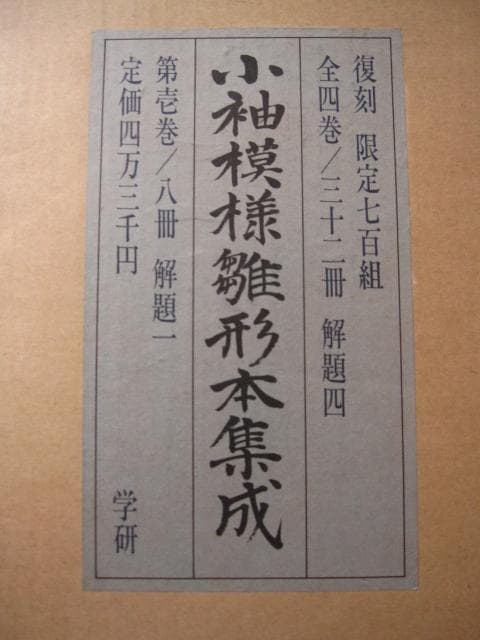 復刻 限定七百組
全四巻/三十二冊 解題四
小袖模様雛形本集成
第壱巻/八冊 解題一
定価四万三千円
学研